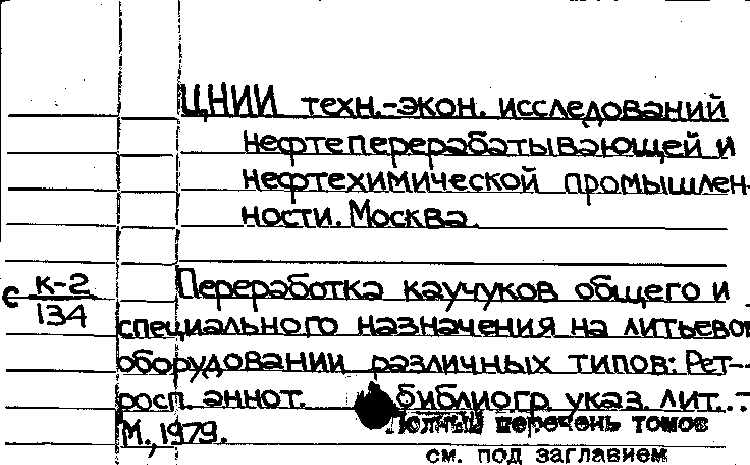 ЦНИИ техн.-экон. исследований
нефтеперерабатывающей и
нефтехимической промышлен-
ности. Москва.
с К-2
134
Переработка каучуков общего и
специального назначения на литьевом
оборудовании различных типов: Рет-
росп. аннот. библиогр. указ. лит. -
М., 1979.
Полный перечень томов
см. под заглавием